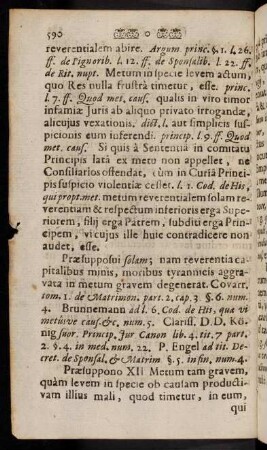 590
reverentialem abire. Argum. princ. §. 1. l. 26.
ff. de Pignorib. l. 12. ff. de Sponsalib. l. 22. ff.
de Rit. nupt. Metum in specie levem actum,
quo Res nulla frustrà timetur, esse. princ.
l. 7. ff. Quod met. caus. qualis in viro timor
infamiæ Juris ab aliquo privato irrogandæ,
alicujus vexationis, dict. l. aut simplicis sus-
picionis eum inferendi. princip. l. 9. ff. Quod
met. caus. Si quis à Sententiâ in comitatu
Principis latâ ex metu non appellet, ne
Consiliarios offendat, cùm in Curiâ Princi-
pis suspicio violentiæ cesset. l. 1. Cod. de His,
qui propt. met. metum reverentialem solam re-
verentiam & respectum inferioris erga Supe-
riorem, filij erga Patrem, subditi erga Prin-
cipem, vi cujus ille huic contradicere non
audet, esse.
Præsupposui solam; nam reverentia ca-
pitalibus minis, moribus tyrannicis aggra-
vata in metum gravem degenerat. Covarr.
tom. 1. de Matrimon. part. 2. cap. 3. §. 6. num.
4. Brunnemann ad l. 6. Cod. de His, quæ vi
metùsve caus. &c. num. 5. Clariss. D. D. Kö-
nig suor. Princip. Jur Canon lib. 4. tit. 7 part.
2. §. 4. in med. num. 22. P. Engel ad tit. De-
cret. de Sponsal. & Matrim §. 5. in fin. num. 4.
Præsuppono XII Metum tam gravem,
quàm levem in specie ob causam producti-
vam illius mali, quod timetur, in eum,
qui